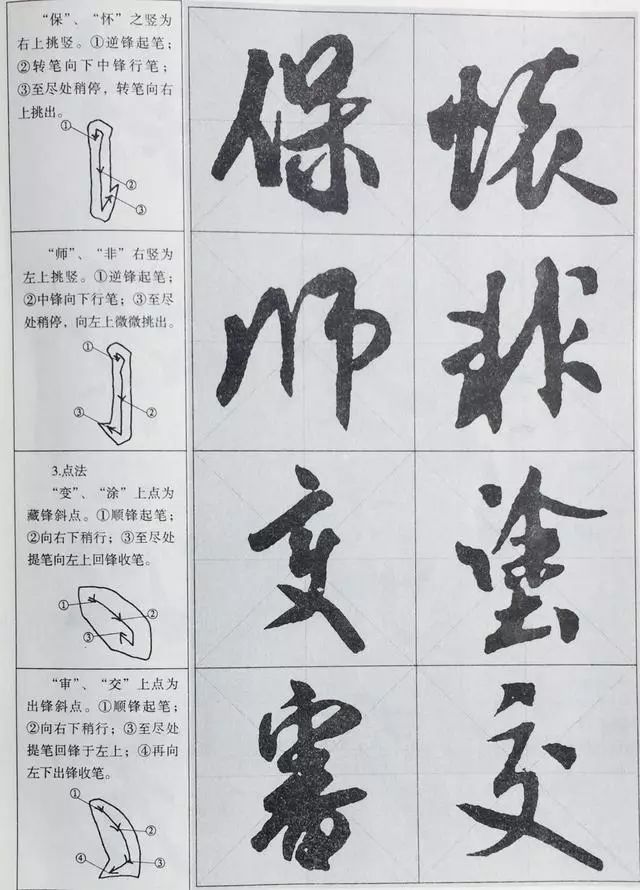 “保”、“怀”之竖为
右上挑竖。①逆锋起笔；
②转笔向下中锋行笔；
③至尽处稍停，转笔向右
上挑出。
①
②
③
保 懷
“师”、“非”右竖为
左上挑竖。①逆锋起笔；
②中锋向下行笔；③至尽
处稍停，向左上微微挑出。
①
③ ②
师 非
3.点法
“变”、“涂”上点为
藏锋斜点。①顺锋起笔；
②向右下稍行；③至尽处
提笔向左上回锋收笔。
① ②
③
变 塗
“审”、“交”上点为
出锋斜点。①顺锋起笔；
②向右下稍行；③至尽处
提笔回锋于左上；④再向
左下出锋收笔。
①
②
④ ③
審 交